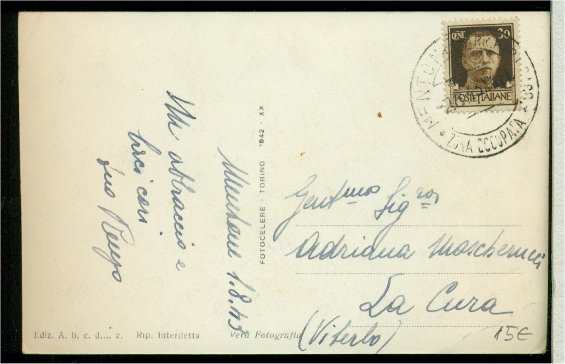 CENT. 30
POSTE ITALIANE
MENTON
* ZONA OCCUPATA *
Un abbraccio e
baci cari
Mentone 1.8.43
FOTOCELERE TORINO 1942 - XX
Gent.ma Sig.ra
Adriana
La Cura
(Viterbo)
15€
Ediz. A. b. c. d.... z. Rip. Interdetta Vera Fotografia